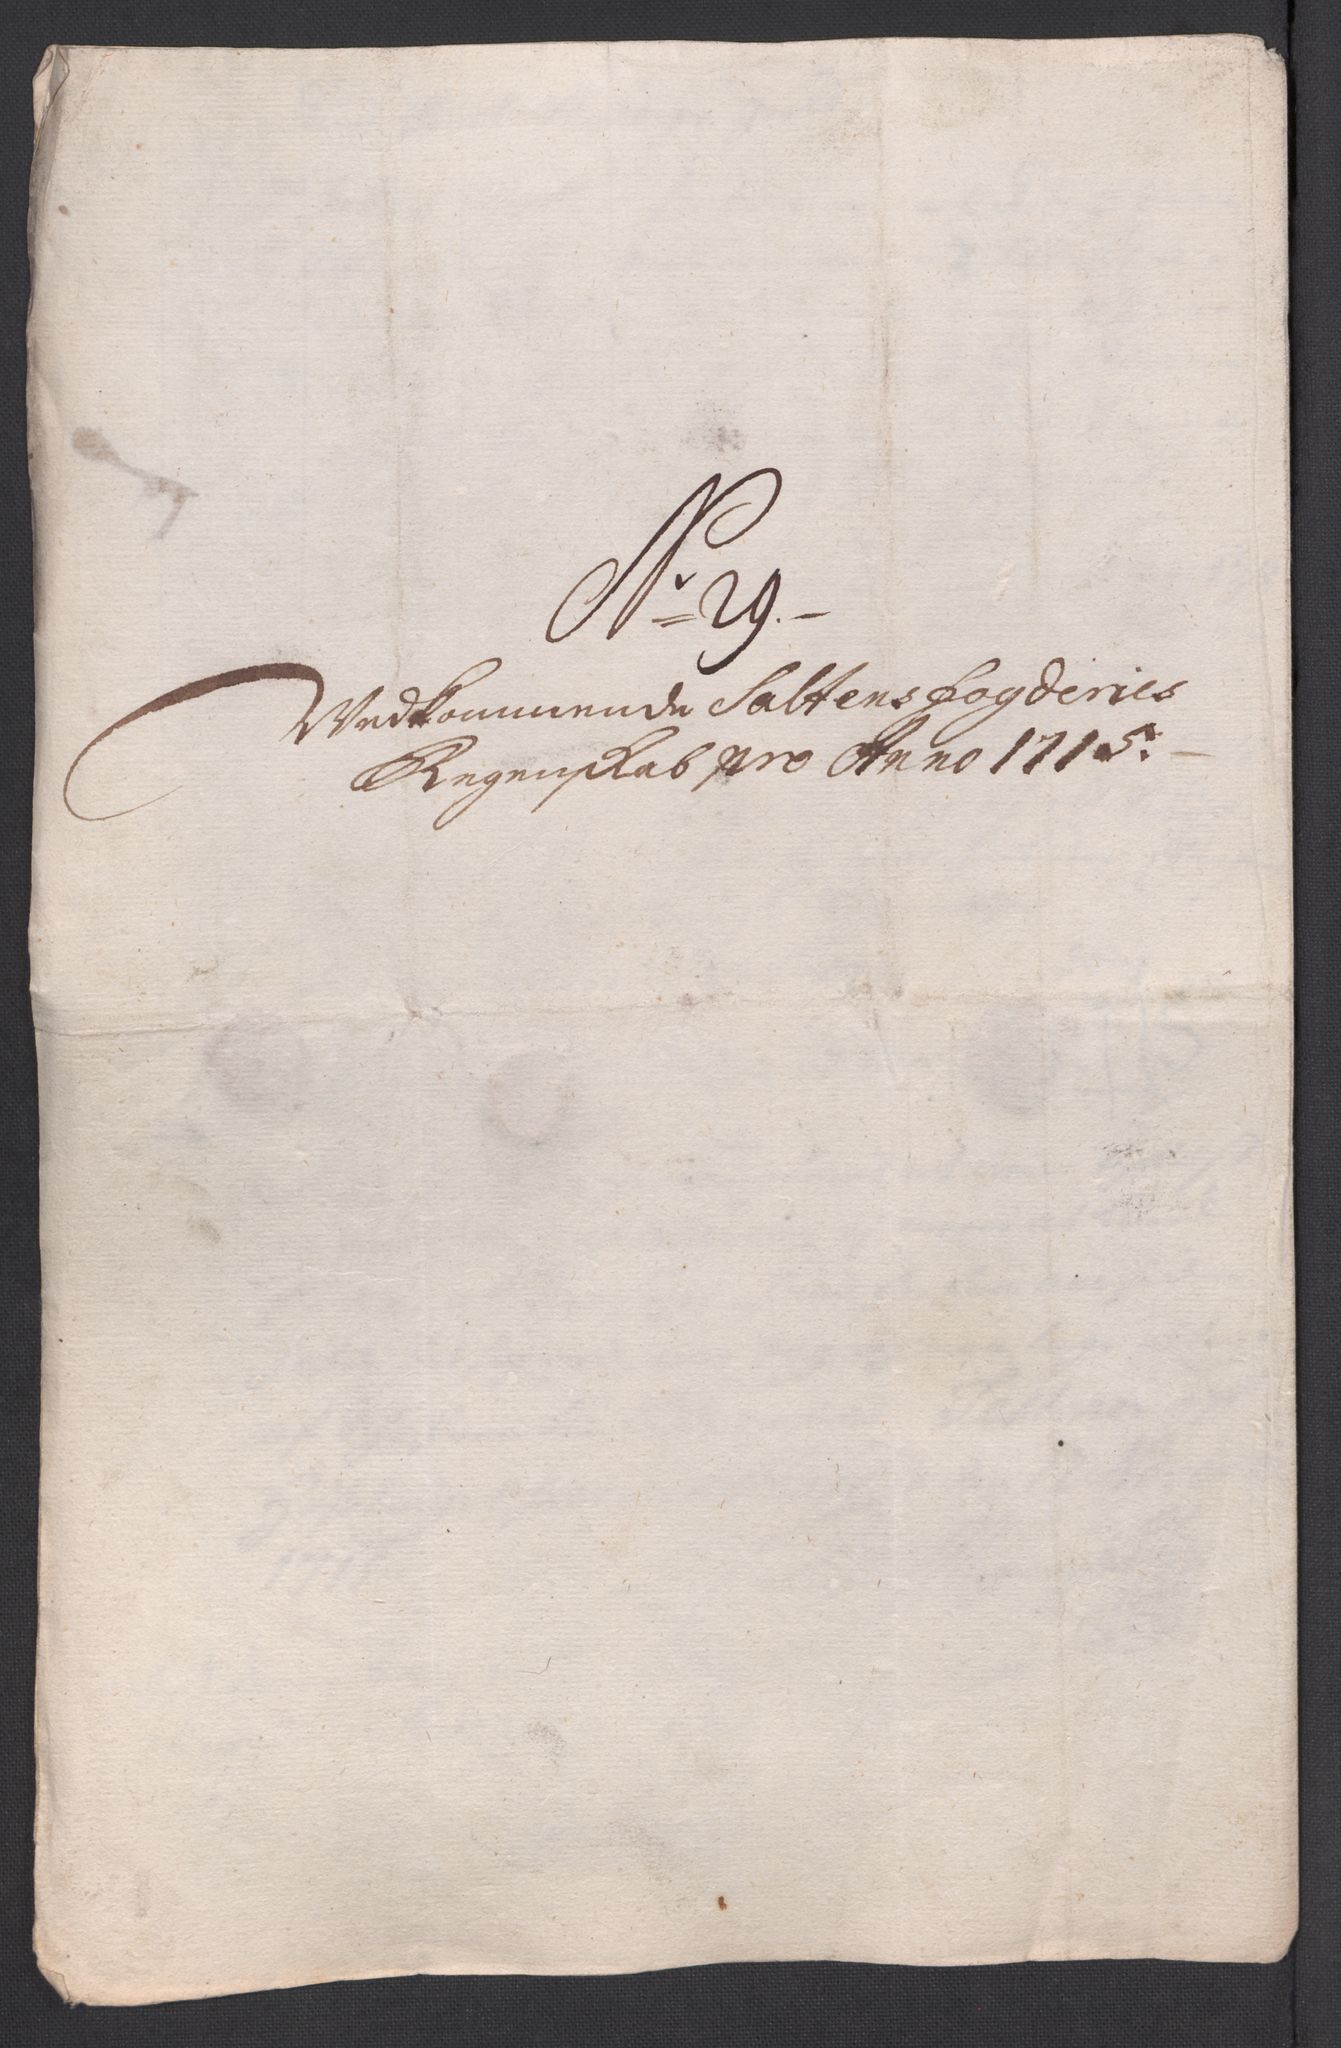 No 29.
Vedkommende Saltens fogderies
Regenskab pro Anno 1715.